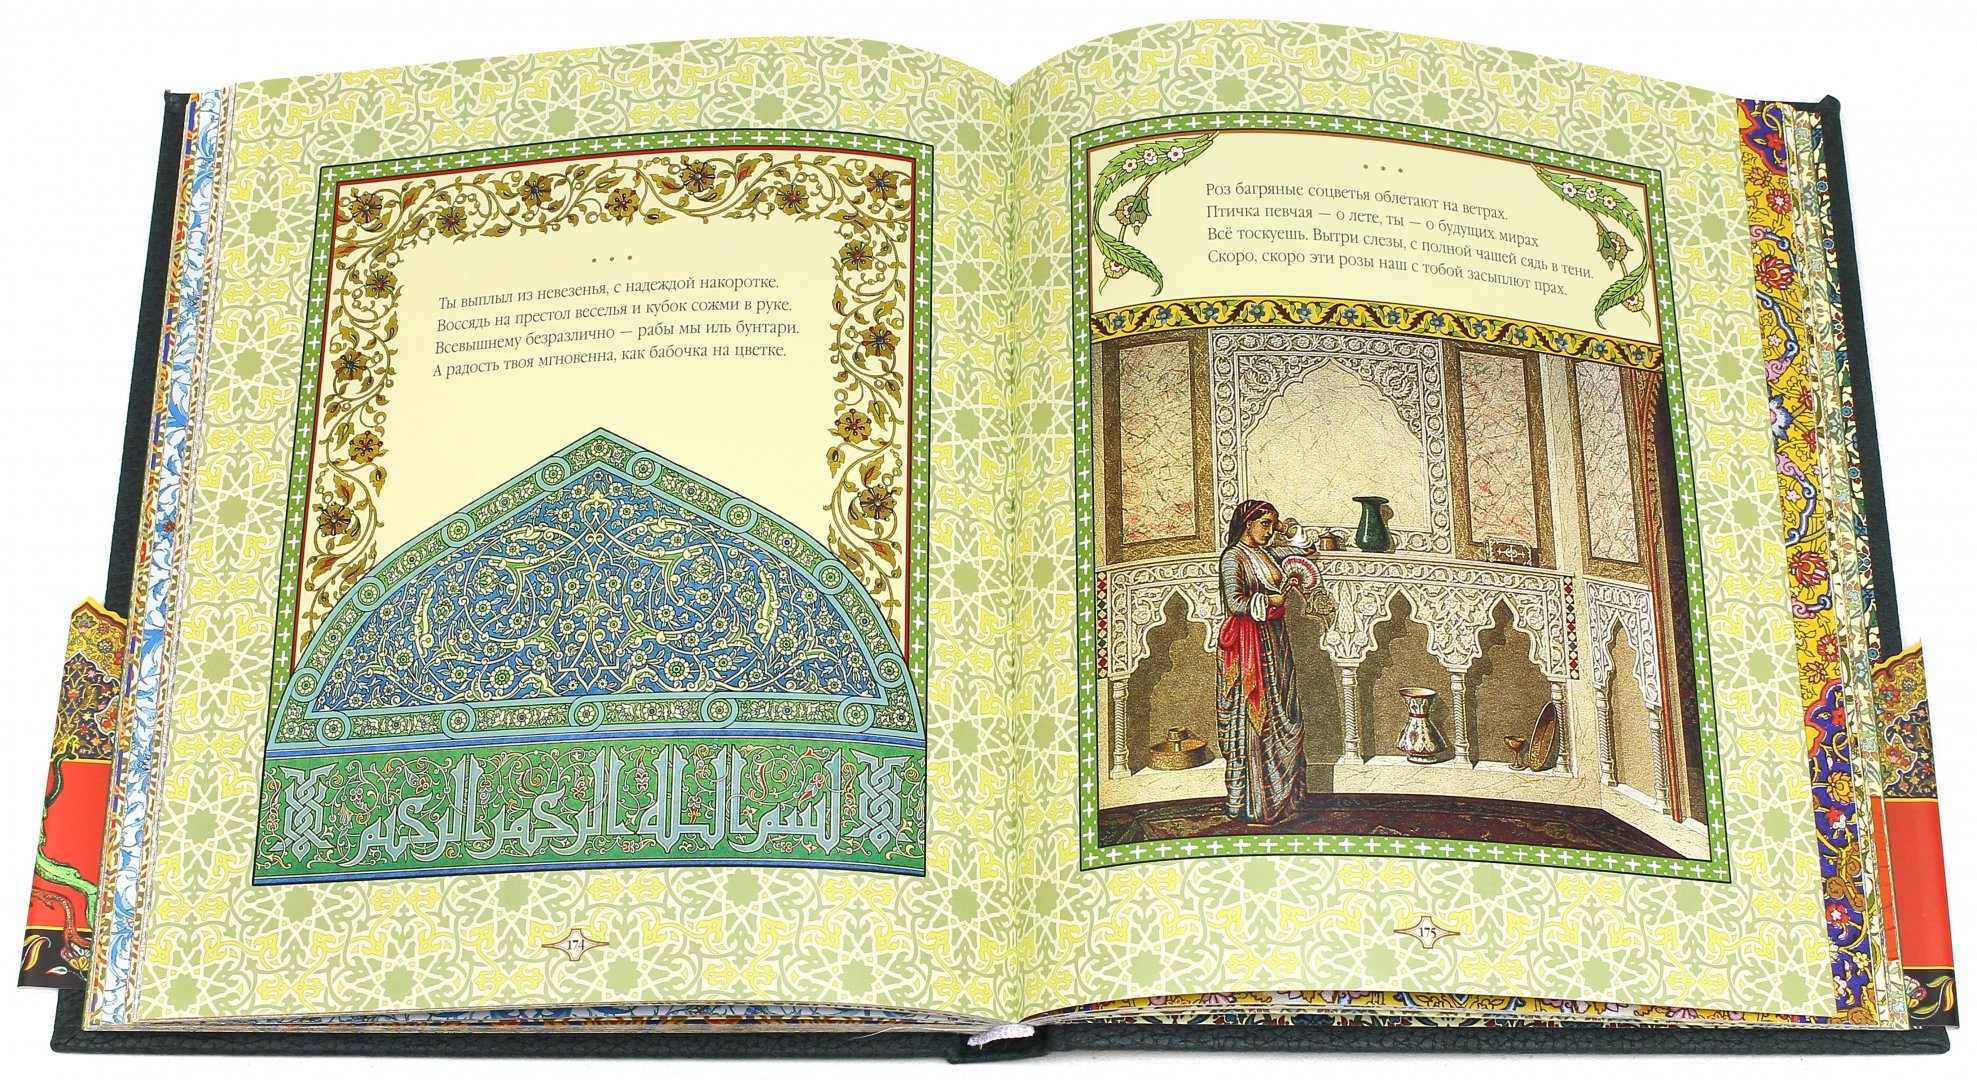 * * *
Ты выплыл из невезенья, с надеждой накоротке.
Воссядь на престол веселья и кубок сожми в руке.
Всевышнему безразлично — рабы мы иль бунтари.
А радость твоя мгновенна, как бабочка на цветке.
بسم الله الرحمن الرحيم
174
* * *
Роз багряные соцветья облетают на ветрах.
Птичка певчая — о лете, ты — о будущих мирах
Всё тоскуешь. Вытри слезы, с полной чашей сядь в тени.
Скоро, скоро эти розы наш с тобой засыплют прах.
175